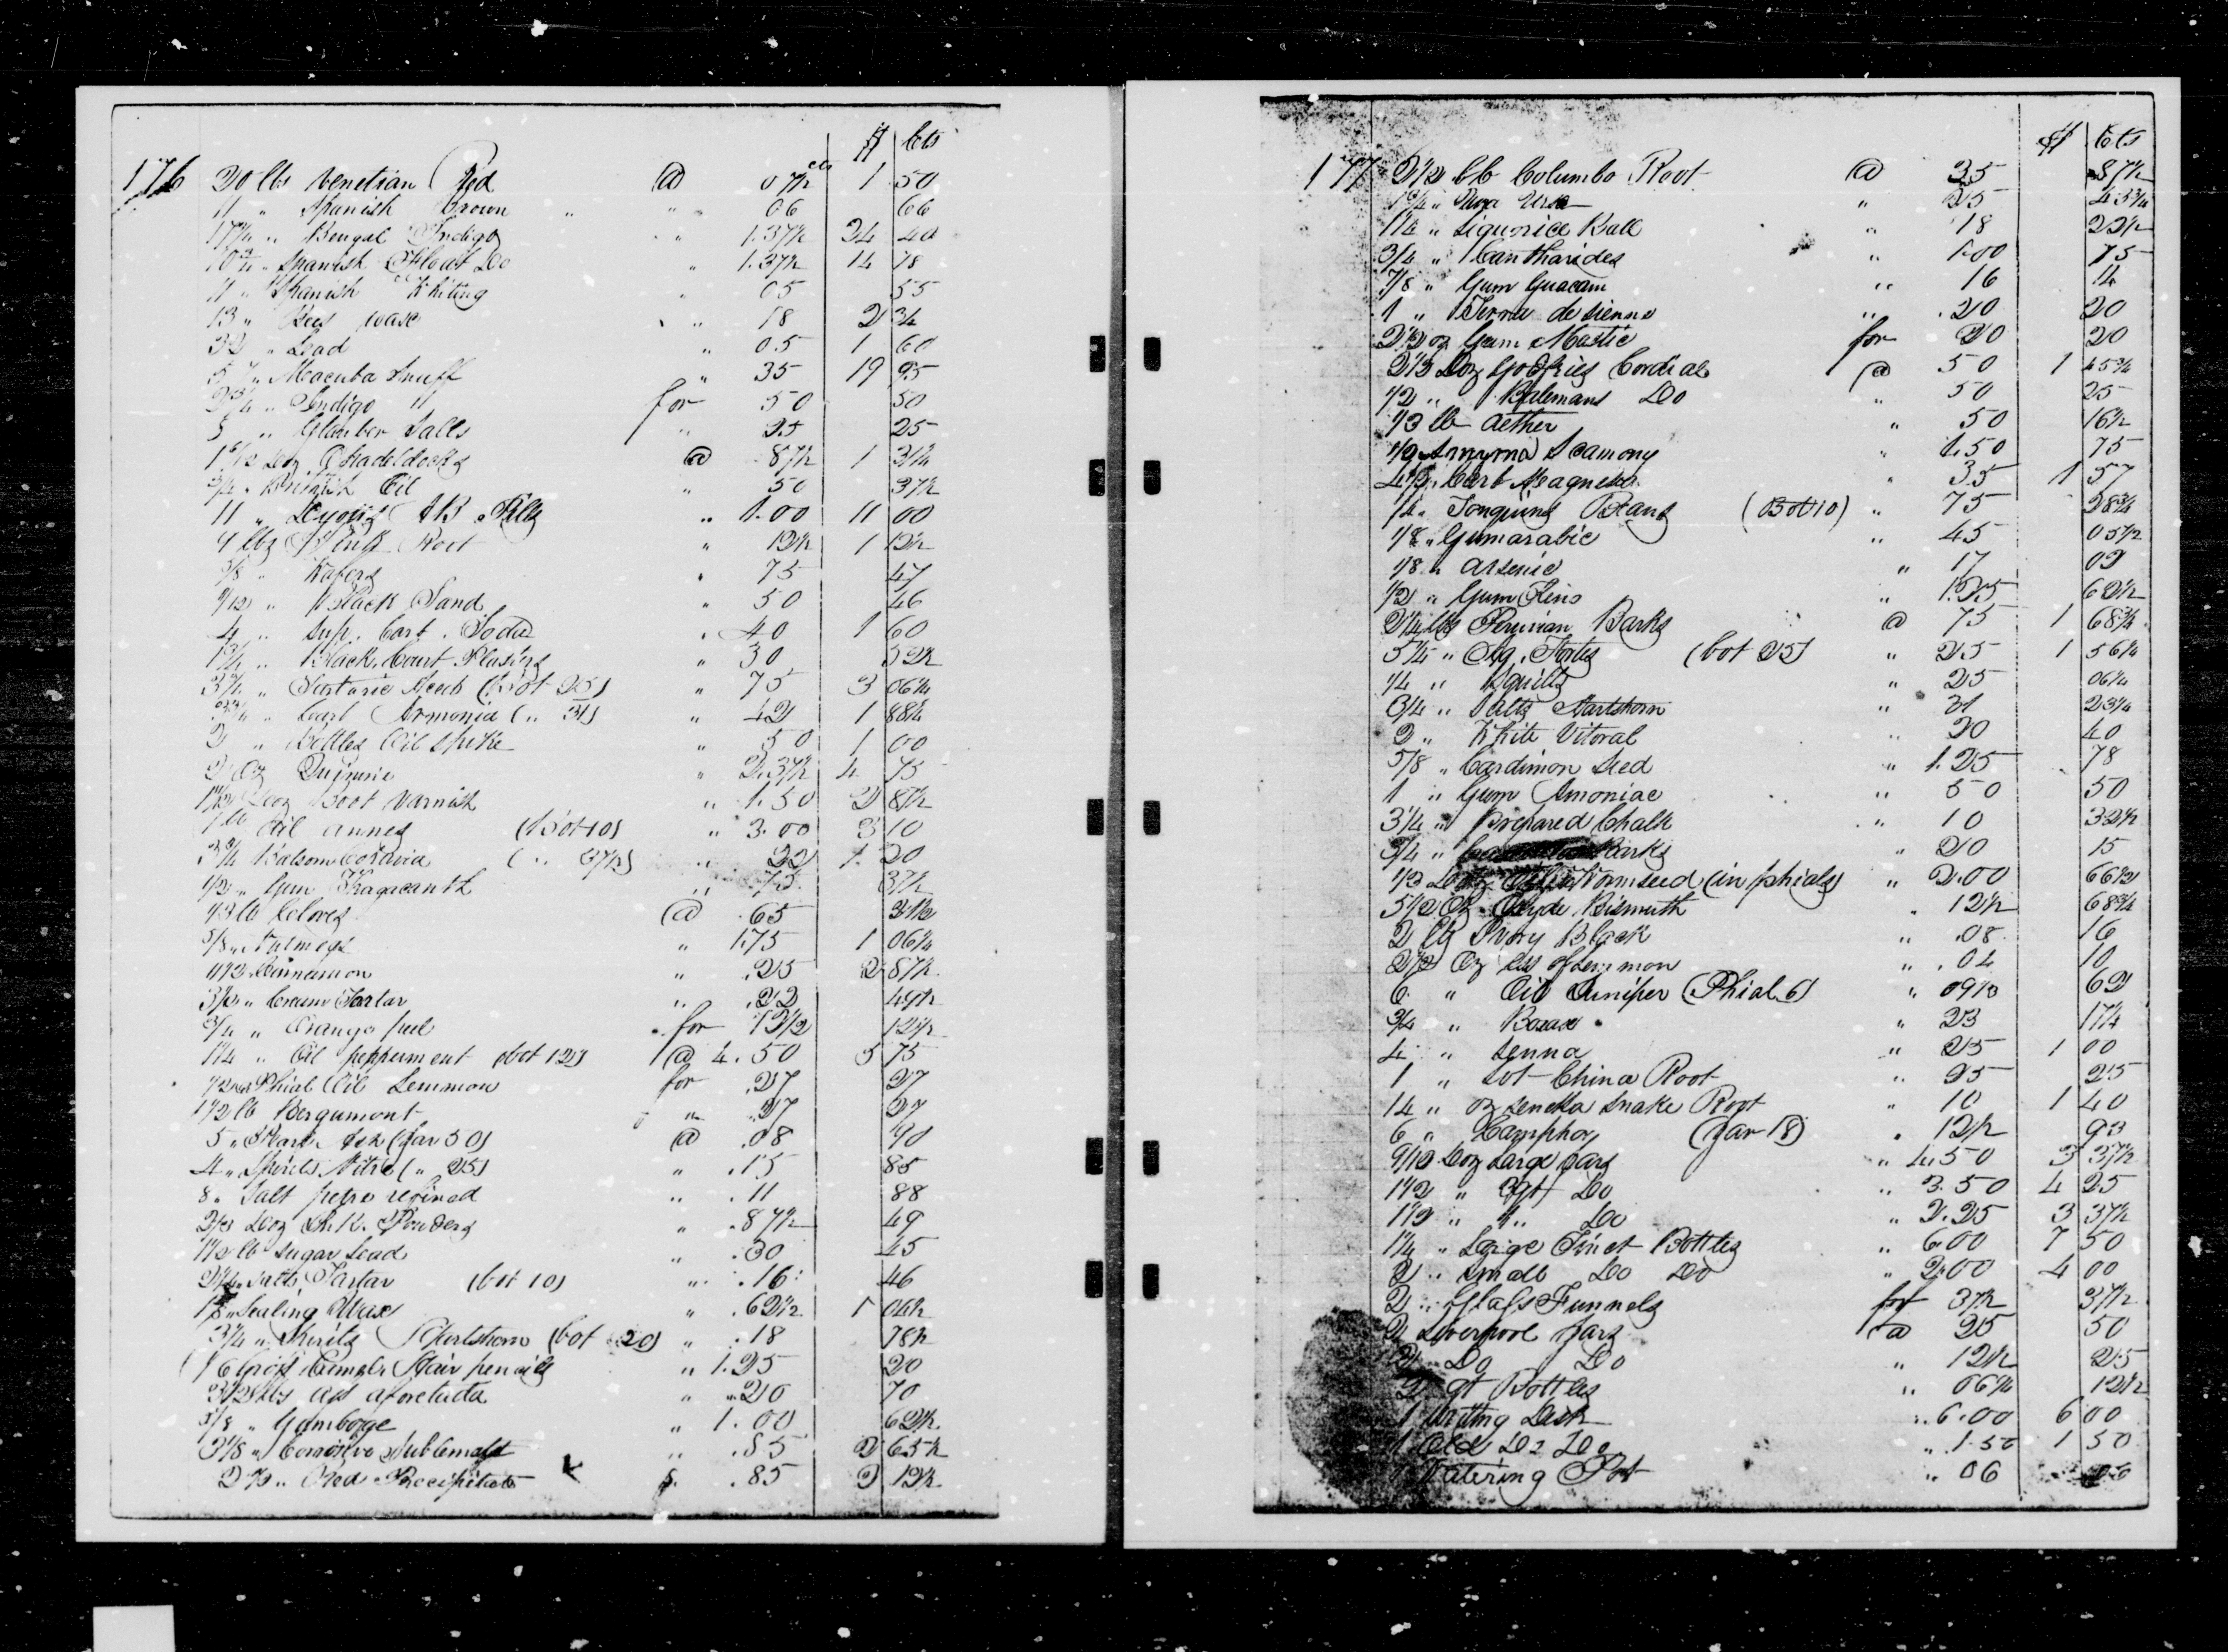 $ Cts
176 20 lbs Venetian Red @ 07½ cts 1 50
11 " Spanish Brown " " 06 66
17¾ " Bengal Indigo " 1.37½ 24 40
" Spanish Float Do " 1.37½ 14 78
11 " Spanish Whiting " 05 55
13 " Bees wax " 18 2 34
32 " Lead " 05 1 60
57 " Macuba Snuff " 35 19 95
" Indigo for 50 50
5 " Glauber Salts " 25 25
Doz @ 87½ 1 31¼
¾ " British Oil " 50 37½
11 " AB Pills " 1.00 11 00
9 lbs Pink Root " 12½ 1 12½
5/8 " Wafers " 75 47
" Black Sand " 50 46
4 " Sup. Carb. Soda " 40 1 60
1¾ " Black Court Plasters " 30 52½
" Tartaric Acid (Bot 25) " 75 3 06¼
" Carb Armonia ( " 31) " 42 1 88¼
2 " Bottles Oil Spike " 50 1 00
2 Oz Quinine " 2.37½ 4 75
Doz Boot Varnish " 1.50 2 87½
1 lb Oil annes (Bot 10) " 3.00 3 10
Balsom Cobavia ( " 37½) " 22 1. 20
1/2 " Gum Tragacanth " 75 37½
lb Cloves @ .65
5/8 " Nutmegs " 1.75 1 06¼
Cinnemon " .25 2 87½
" Cream Tartar " .22 49½
¾ " Orange peel " for 12½ 12½
1¼ " Oil pepperment (bot 12) @ 4.50 5 75
Phial Oil Lemmon for .27 27
1½ lb Bergumont " " .27 27
5 " (Jar 50) @ .08 90
4 " Spirits Nitre ( " 25) " .15 85
8 " Salt petre refined " .11 88
Doz Powders " .87½ 49
1½ lb Sugar Lead " .30 45
Salts Tartar (bot 10) " .16 46
Sealing Wax " .62½ 1
" Spirits Hartshorn (bot 20) " .18 78½
Gross Camels Hair pencils " 1.25 20
3½ lbs afoetada " .20 70
5/8 " Gamboge " 1.00 62½
3 1/8 " Corrosive Sublemate " .85 2 65½
2½ " Red Precipitate .85 2 12½
$ Cts
177 2½ lb Columbo Root @ 35 87½
1¾ " Uva Ursa " 25 43¾
1¼ " Liquorice Ball " 18 22½
3/4 " Cantharides " 1.00 75
7/8 " Gum Guacam " 16 14
1 " Terra de sienna " .20 20
2½ oz Gum Mastic for 20 20
Doz Godfries Cordial @ 50 1 45¾
1/2 " Batemans Do " 50 25
1/3 lb Aether " 50 16½
1/2 Smyrna Scamony " 1.50 75
4½ " Carb Magnesia " 35 1 57
1/4 " Tonquins Beans (Bot 10) " 75 28¾
1/8 " Gumarabic " 45 05½
1/8 " Arsenic " 17 02
1/2 " Gum Kino " 1.25 62½
2¼ lbs Peruvian Barks @ 75 1 68¾
5¼ " Aq. Fortis (bot 25) " 25 1 56¼
1/4 " Squills " 25 06¼
3/4 " Salts Hartshorn " 31 23¼
2 " White Vitoral " 20 40
5/8 " Cardimon Seed " 1.25 78
1 " Gum Amoniac " 50 50
3¼ " Prepared Chalk " 10 32½
3/4 " Barks " 20 15
1/3 Doz Wormseed (in phials) " 2.00 66½
5½ Oz Oxyde Bismuth " 12½ 68¾
2 lb Ivory Black " .08 16
2½ Oz Ess of Lemmon " .04 10
6 " Oil Juniper (Phial 6) " 62
3/4 " Borax " 23 17¼
4 " Senna " 25 1 00
1 " Lot China Root " 25 25
14 " oz Seneka Snake Root " 10 1 40
6 " Camphor (Jar 18) " 12½ 93
Doz Large Jars " 4.50 3 37½
" Do " 3.50 4 25
1½ " " Do " 2.25 3 37½
1¼ " Large Tinct Bottles " 6.00 7 50
2 " Small Do Do " 2.00 4 00
2 " Glass Funnels for 37½ 37½
2 Liverpool Jars @ 25 50
2 Do Do " 12½ 25
2 qt Bottles " 06¼ 12½
1 Writing Desk " 6.00 6 00
1 Old Do Do " 1.50 1 50
1 Watering Pot " 06 06